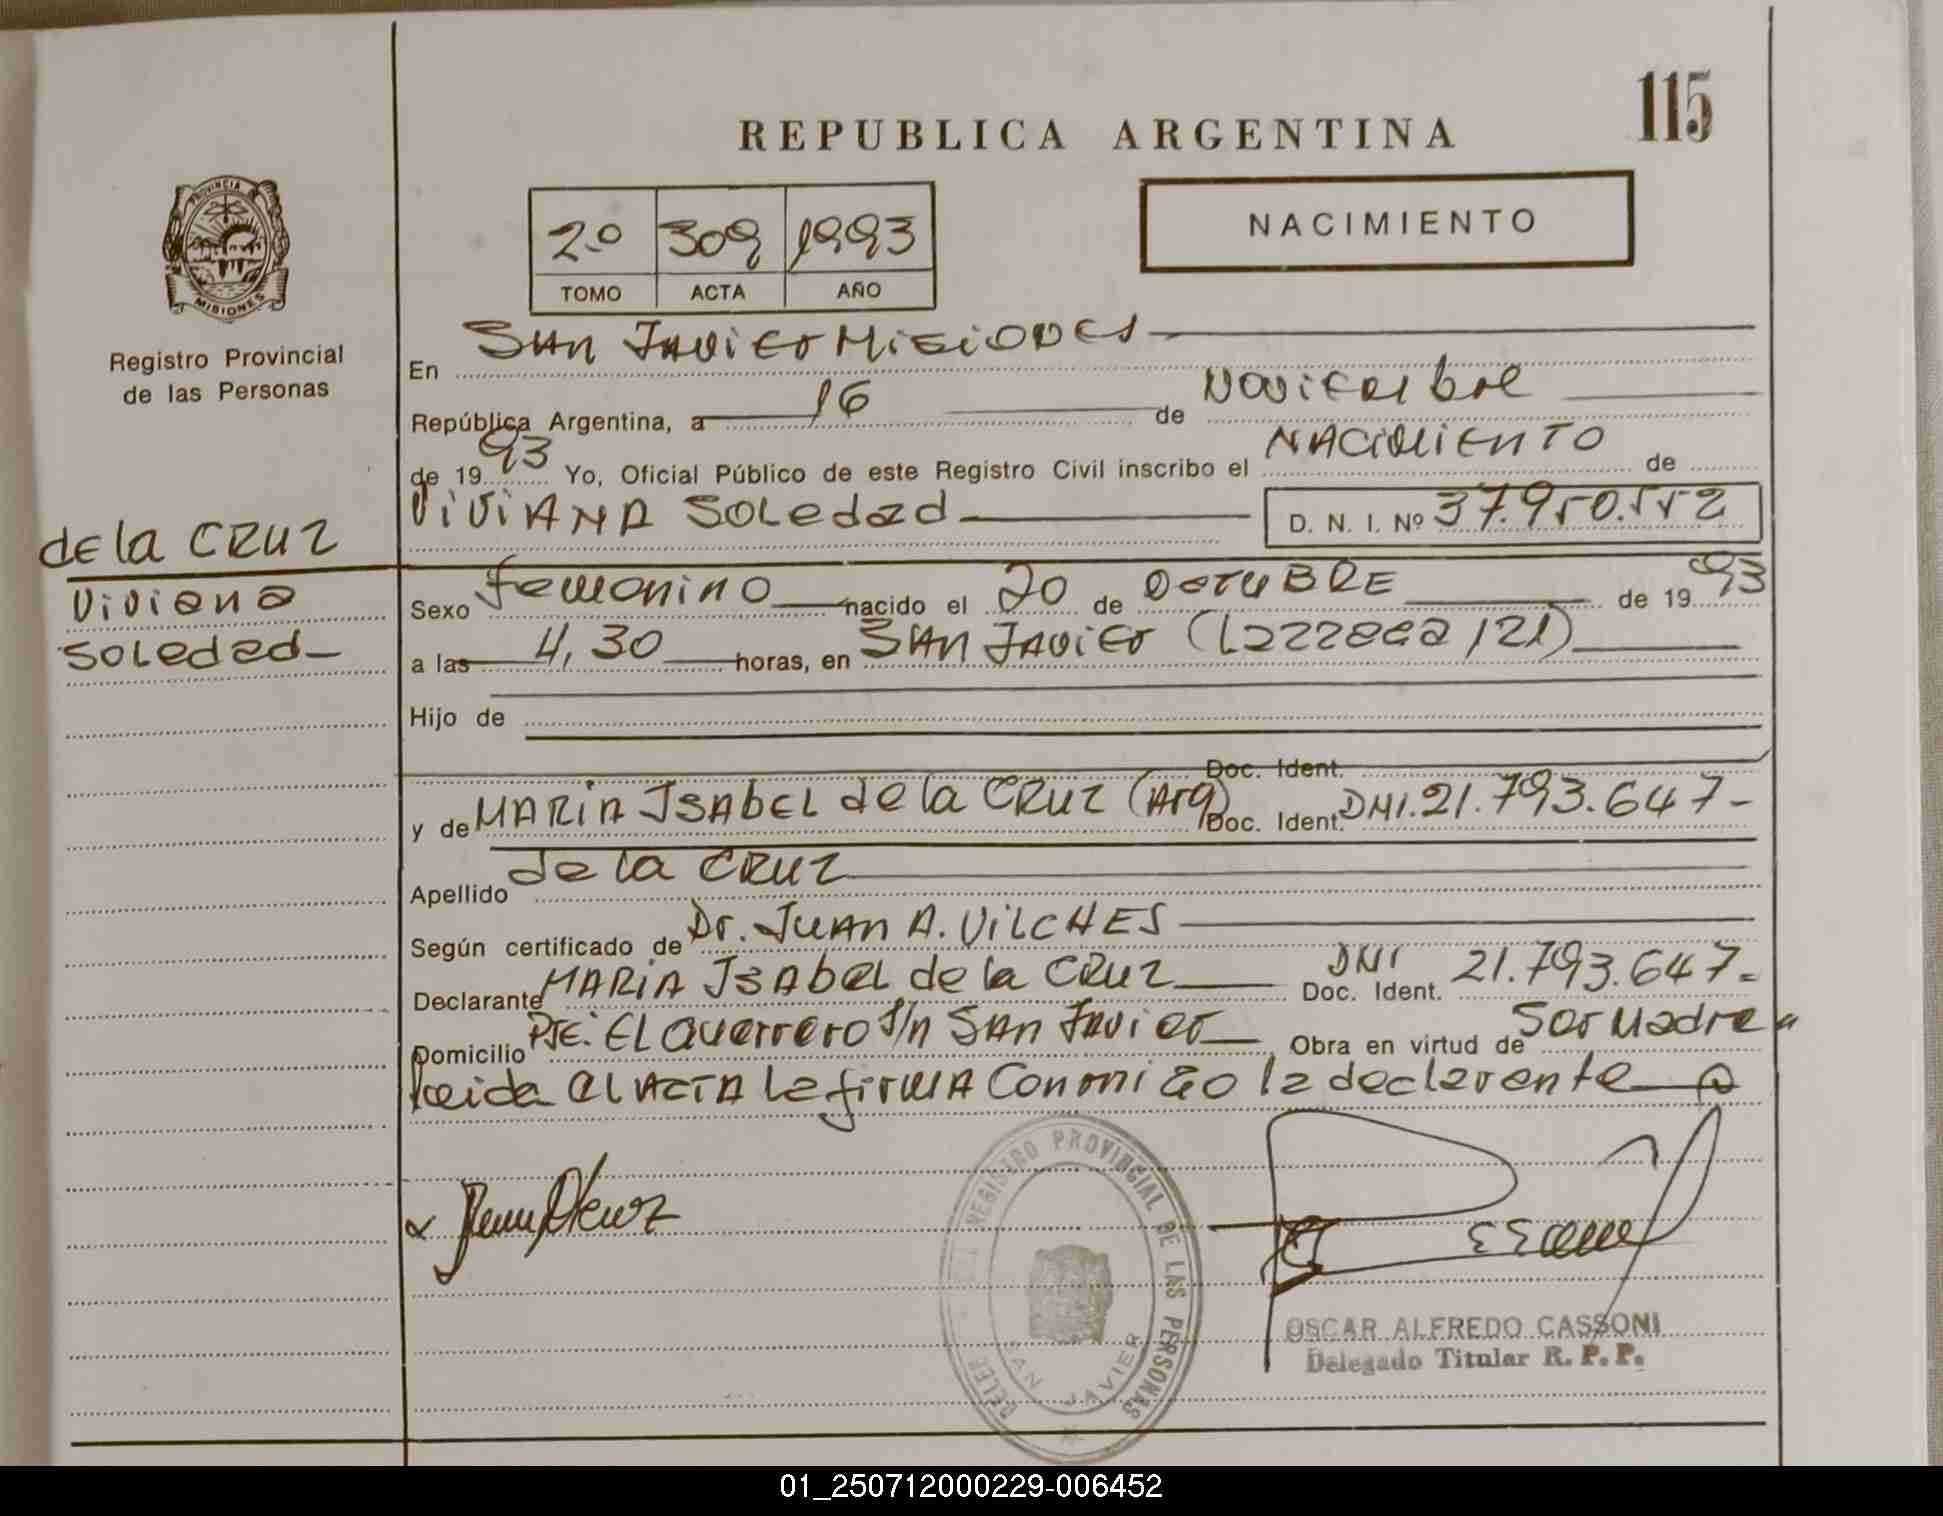 115
REPUBLICA ARGENTINA
PROVINCIA DE
MISIONES
Registro Provincial
de las Personas
2º 309 1993
TOMO ACTA AÑO
NACIMIENTO
En San Javier Misiones
República Argentina, a 16 de Noviembre
de 1993 Yo, Oficial Público de este Registro Civil inscribo el NACIMIENTO de
VIVIANA Soledad D. N. I. Nº 37.950.552
de la CRUZ
Viviana
Soledad
Sexo femenino nacido el 20 de OCTUBRE de 1993
a las 4,30 horas, en SAN JAVIER (Lazzaga 121)
Hijo de
Doc. Ident.
y de MARIA ISABEL de la CRUZ (Arg) Doc. Ident. DNI.21.793.647-
Apellido de la CRUZ
Según certificado de Dr. JUAN A. VILCHES
Declarante MARIA ISABEL de la CRUZ DNI Doc. Ident. 21.793.647=
Domicilio Pje. El Guerrero s/n San Javier Obra en virtud de Ser Madre "
Leida el ACTA La firmA Conmigo la declarante
REGISTRO PROVINCIAL DE LAS PERSONAS
SAN JAVIER
OSCAR ALFREDO CASSONI
Delegado Titular R. P. P.
01_250712000229-006452